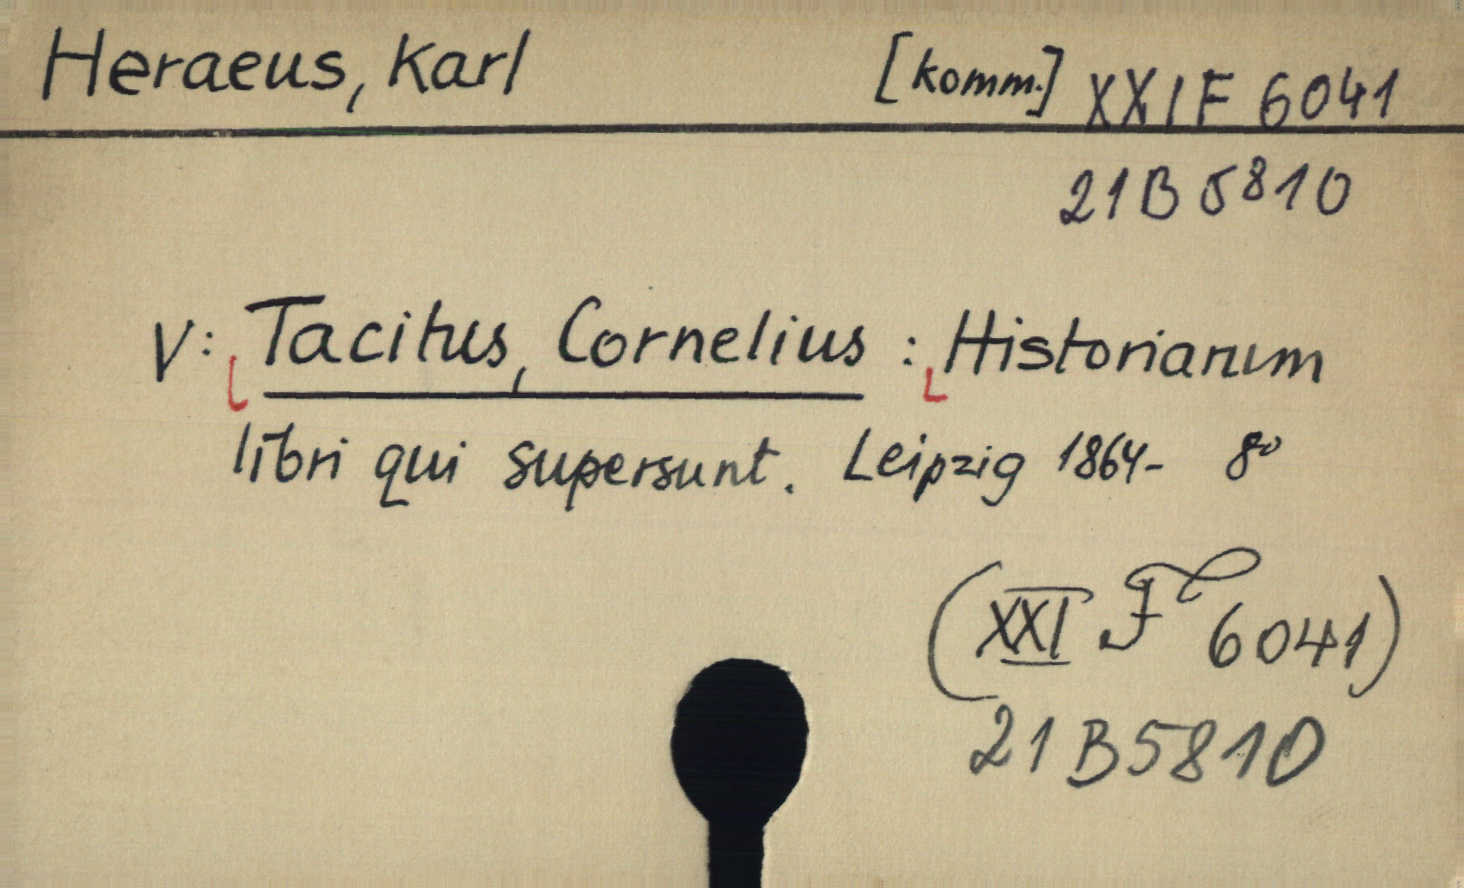 Heraeus, Karl [komm.] XXI F 6041
21 B 5810
V: Tacitus, Cornelius : Historiarum
libri qui supersunt. Leipzig 1864- 8°
(XXI F 6041)
21 B 5810